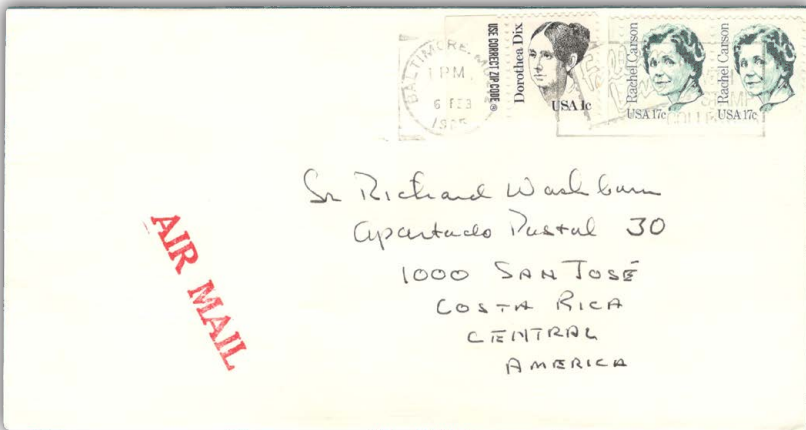 BALTIMORE, MD
1 PM
6 FEB
1985
USE CORRECT ZIP CODE®
Dorothea Dix
USA 1c
Rachel Carson
USA 17c
Rachel Carson
USA 17c
STAMP
COLLE
Sr Richard Washburn
Apartado Postal 30
1000 SAN JOSÉ
COSTA RICA
CENTRAL
AMERICA
AIR MAIL